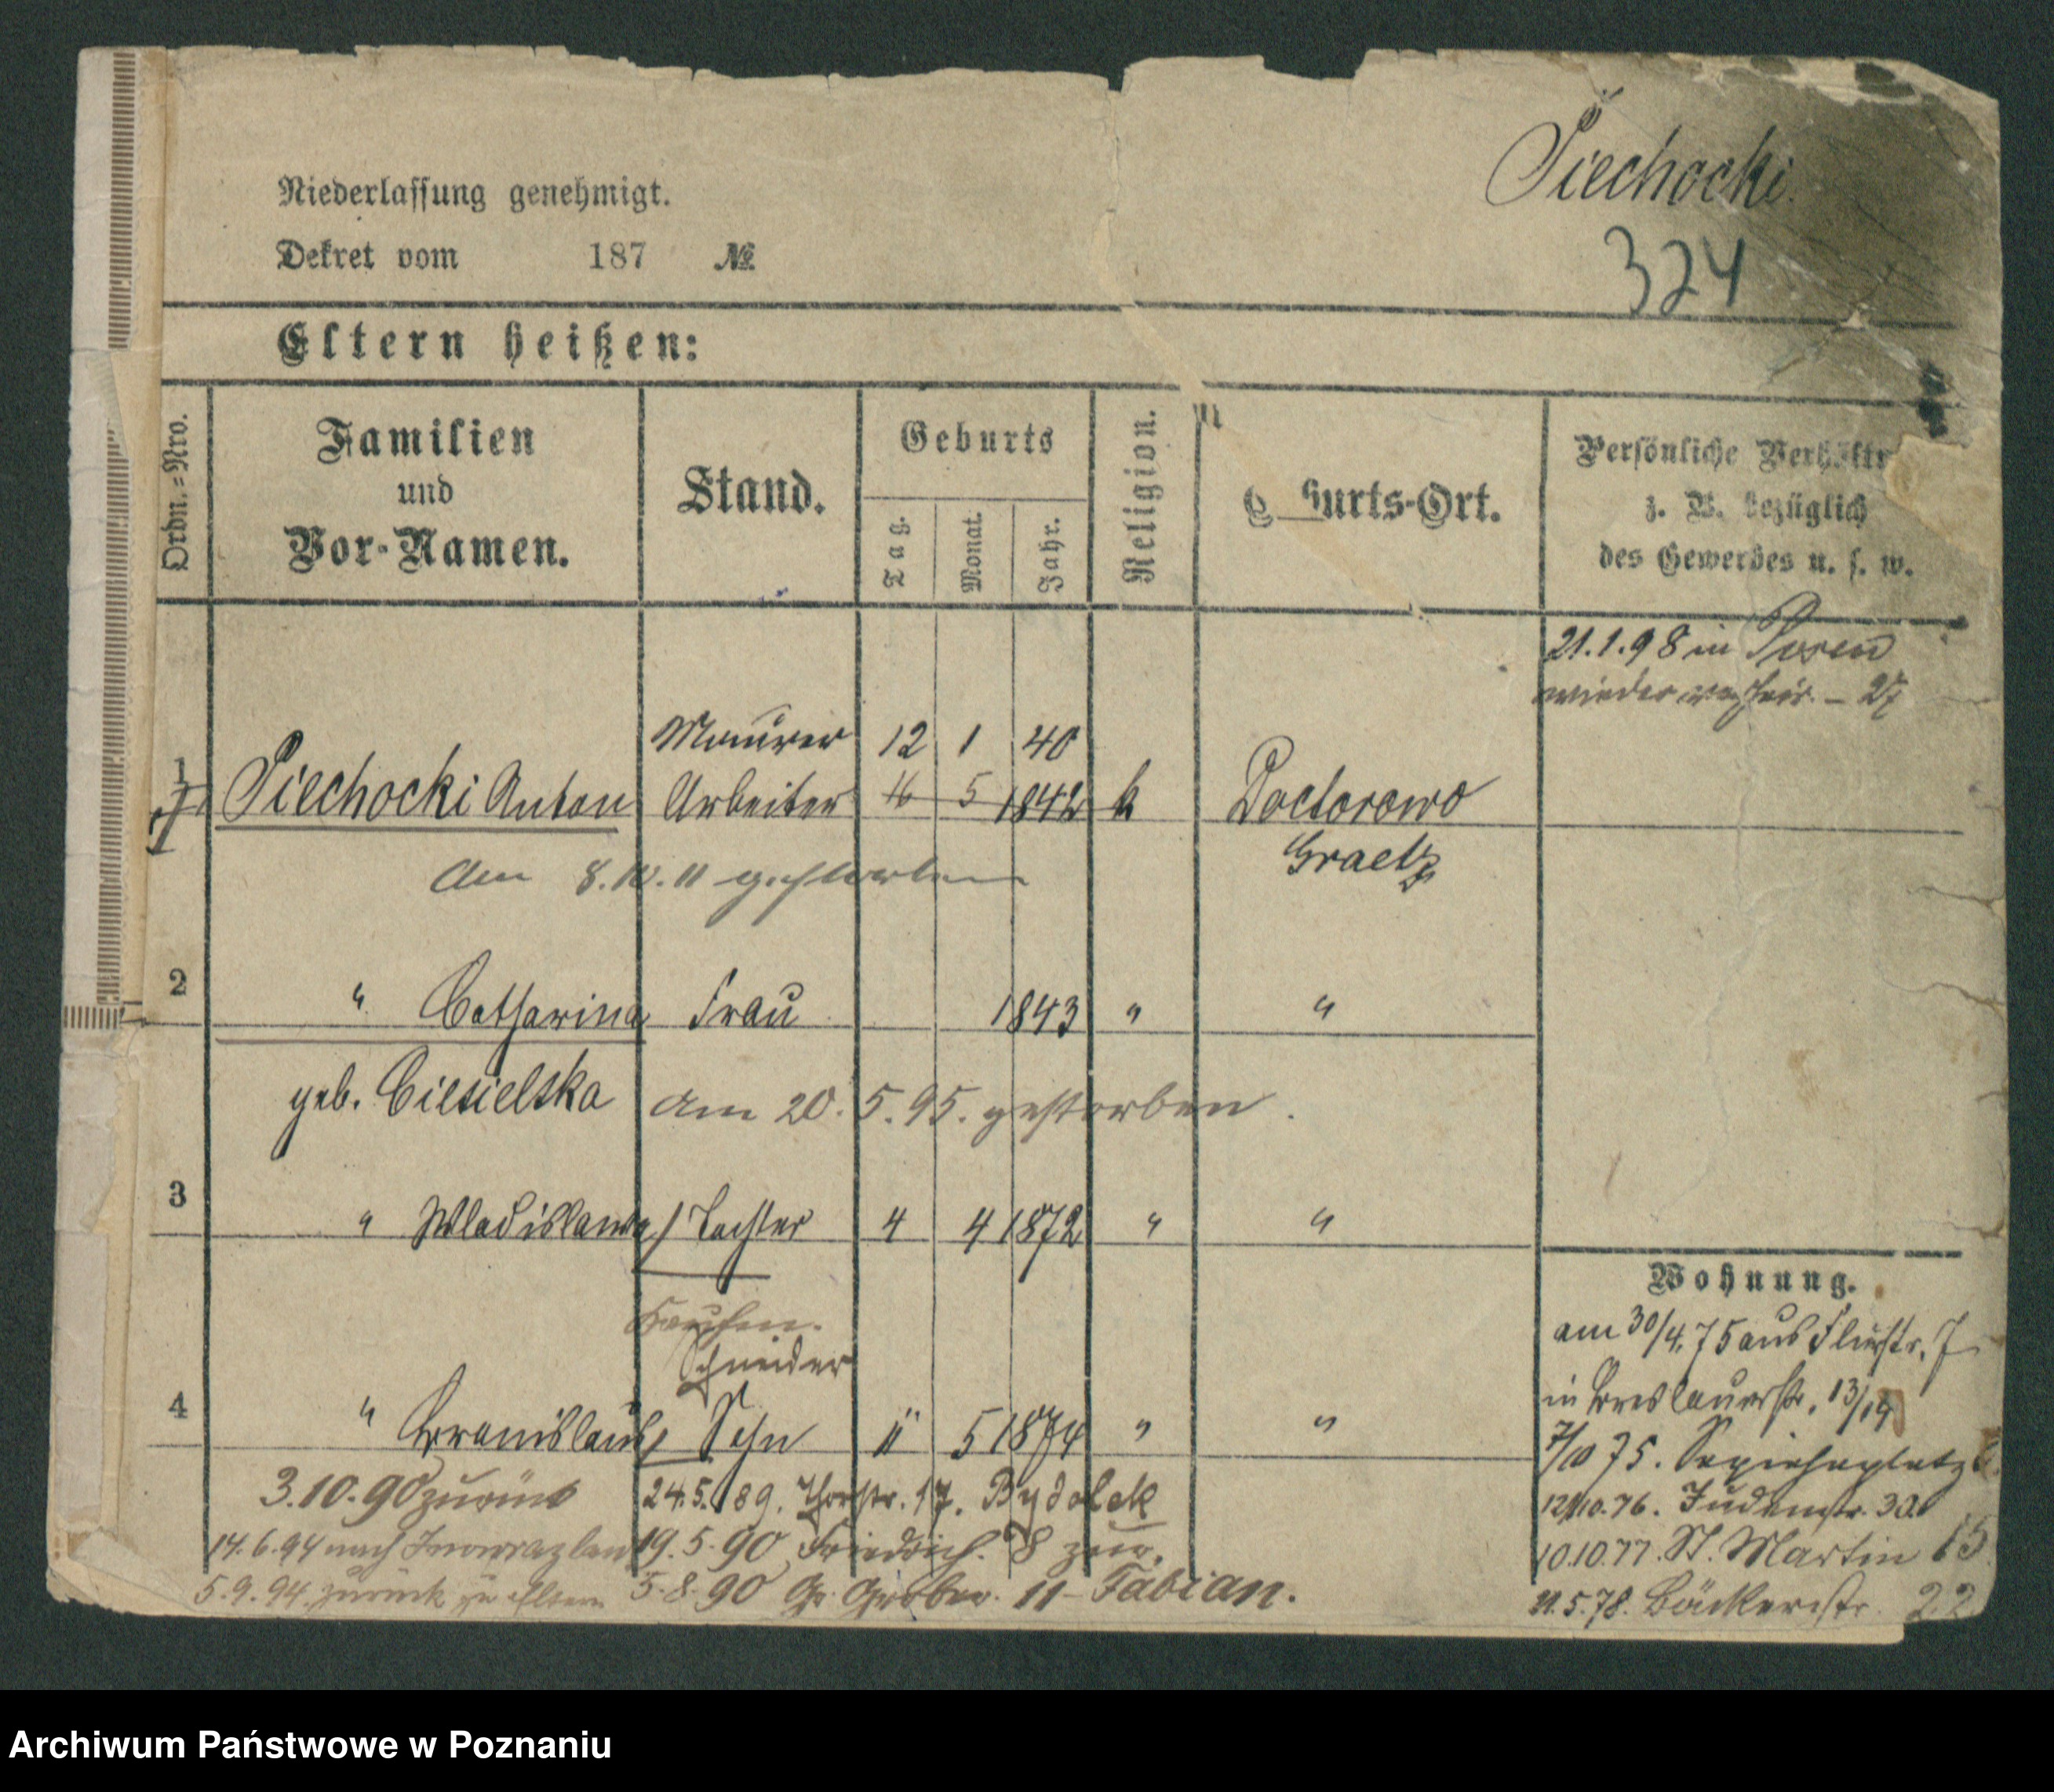 Piechocki.
Niederlassung genehmigt.
Dekret vom 187 №
324
Eltern heißen:
Ordn.-Nro.
Familien
und
Vor-Namen.
Stand.
Geburts
Tag.
Monat.
Jahr.
Religion.
urts-Ort.
Persönliche
z. B. bezüglich
des Gewerbes u. s. w.
21.1.98 in Posen
wieder – 27
Maurer 12 1 40
1 Piechocki Anton Arbeiter 16 5 1842 k Doctorowo
Graetz
Am 8.10.11 gestorben
2 " Catharina Frau 1843 " "
geb. Ciesielska am 20.5.95. gestorben.
3 " Wladislawa Tochter 4 4 1872 " "
Schneider
4 " Sohn 11 5 1874 " "
3.10.90 zurück 24.5.89. Thorstr. 17. Bydolek
14.6.94 nach Inowrazlaw 19.5.90 Friedrich. 8 zur.
5.9.94. zurück zu Eltern 5.8.90 Gr. Gerber. 11 – Fabian.
Wohnung.
am 30/4.75 aus Flurstr. 7
in Breslauerstr. 13/14
7/10 75. Sapiehaplatz
12/10.76. Judenstr. 30
10.10.77. St. Martin 15
21.5.78. Bäckerstr. 22
Archiwum Państwowe w Poznaniu